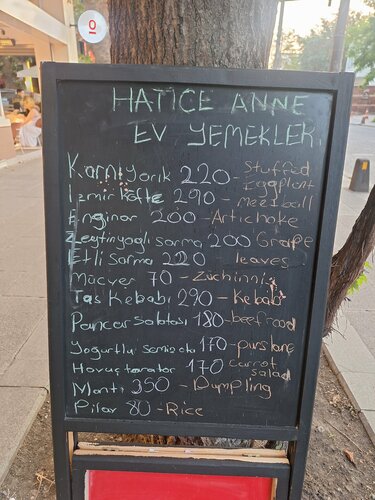 HATICE ANNE
EV YEMEKLERİ
Karnıyarık 220 - Stuffed Eggplant
İzmir köfte 290 - Meetball
Enginar 200 - Artichoke
Zeytinyağlı sarma 200 Grape
Etli sarma 220 leaves
Mücver 70 - Zuchinni
Tas Kebabı 290 - Kebab
Pancar salatası 180 - beefrood
Yogurtlu semizotu 170 - purslane
Havuç tarator 170 carrot salad
Mantı 350 - Dumpling
Pilav 80 - Rice